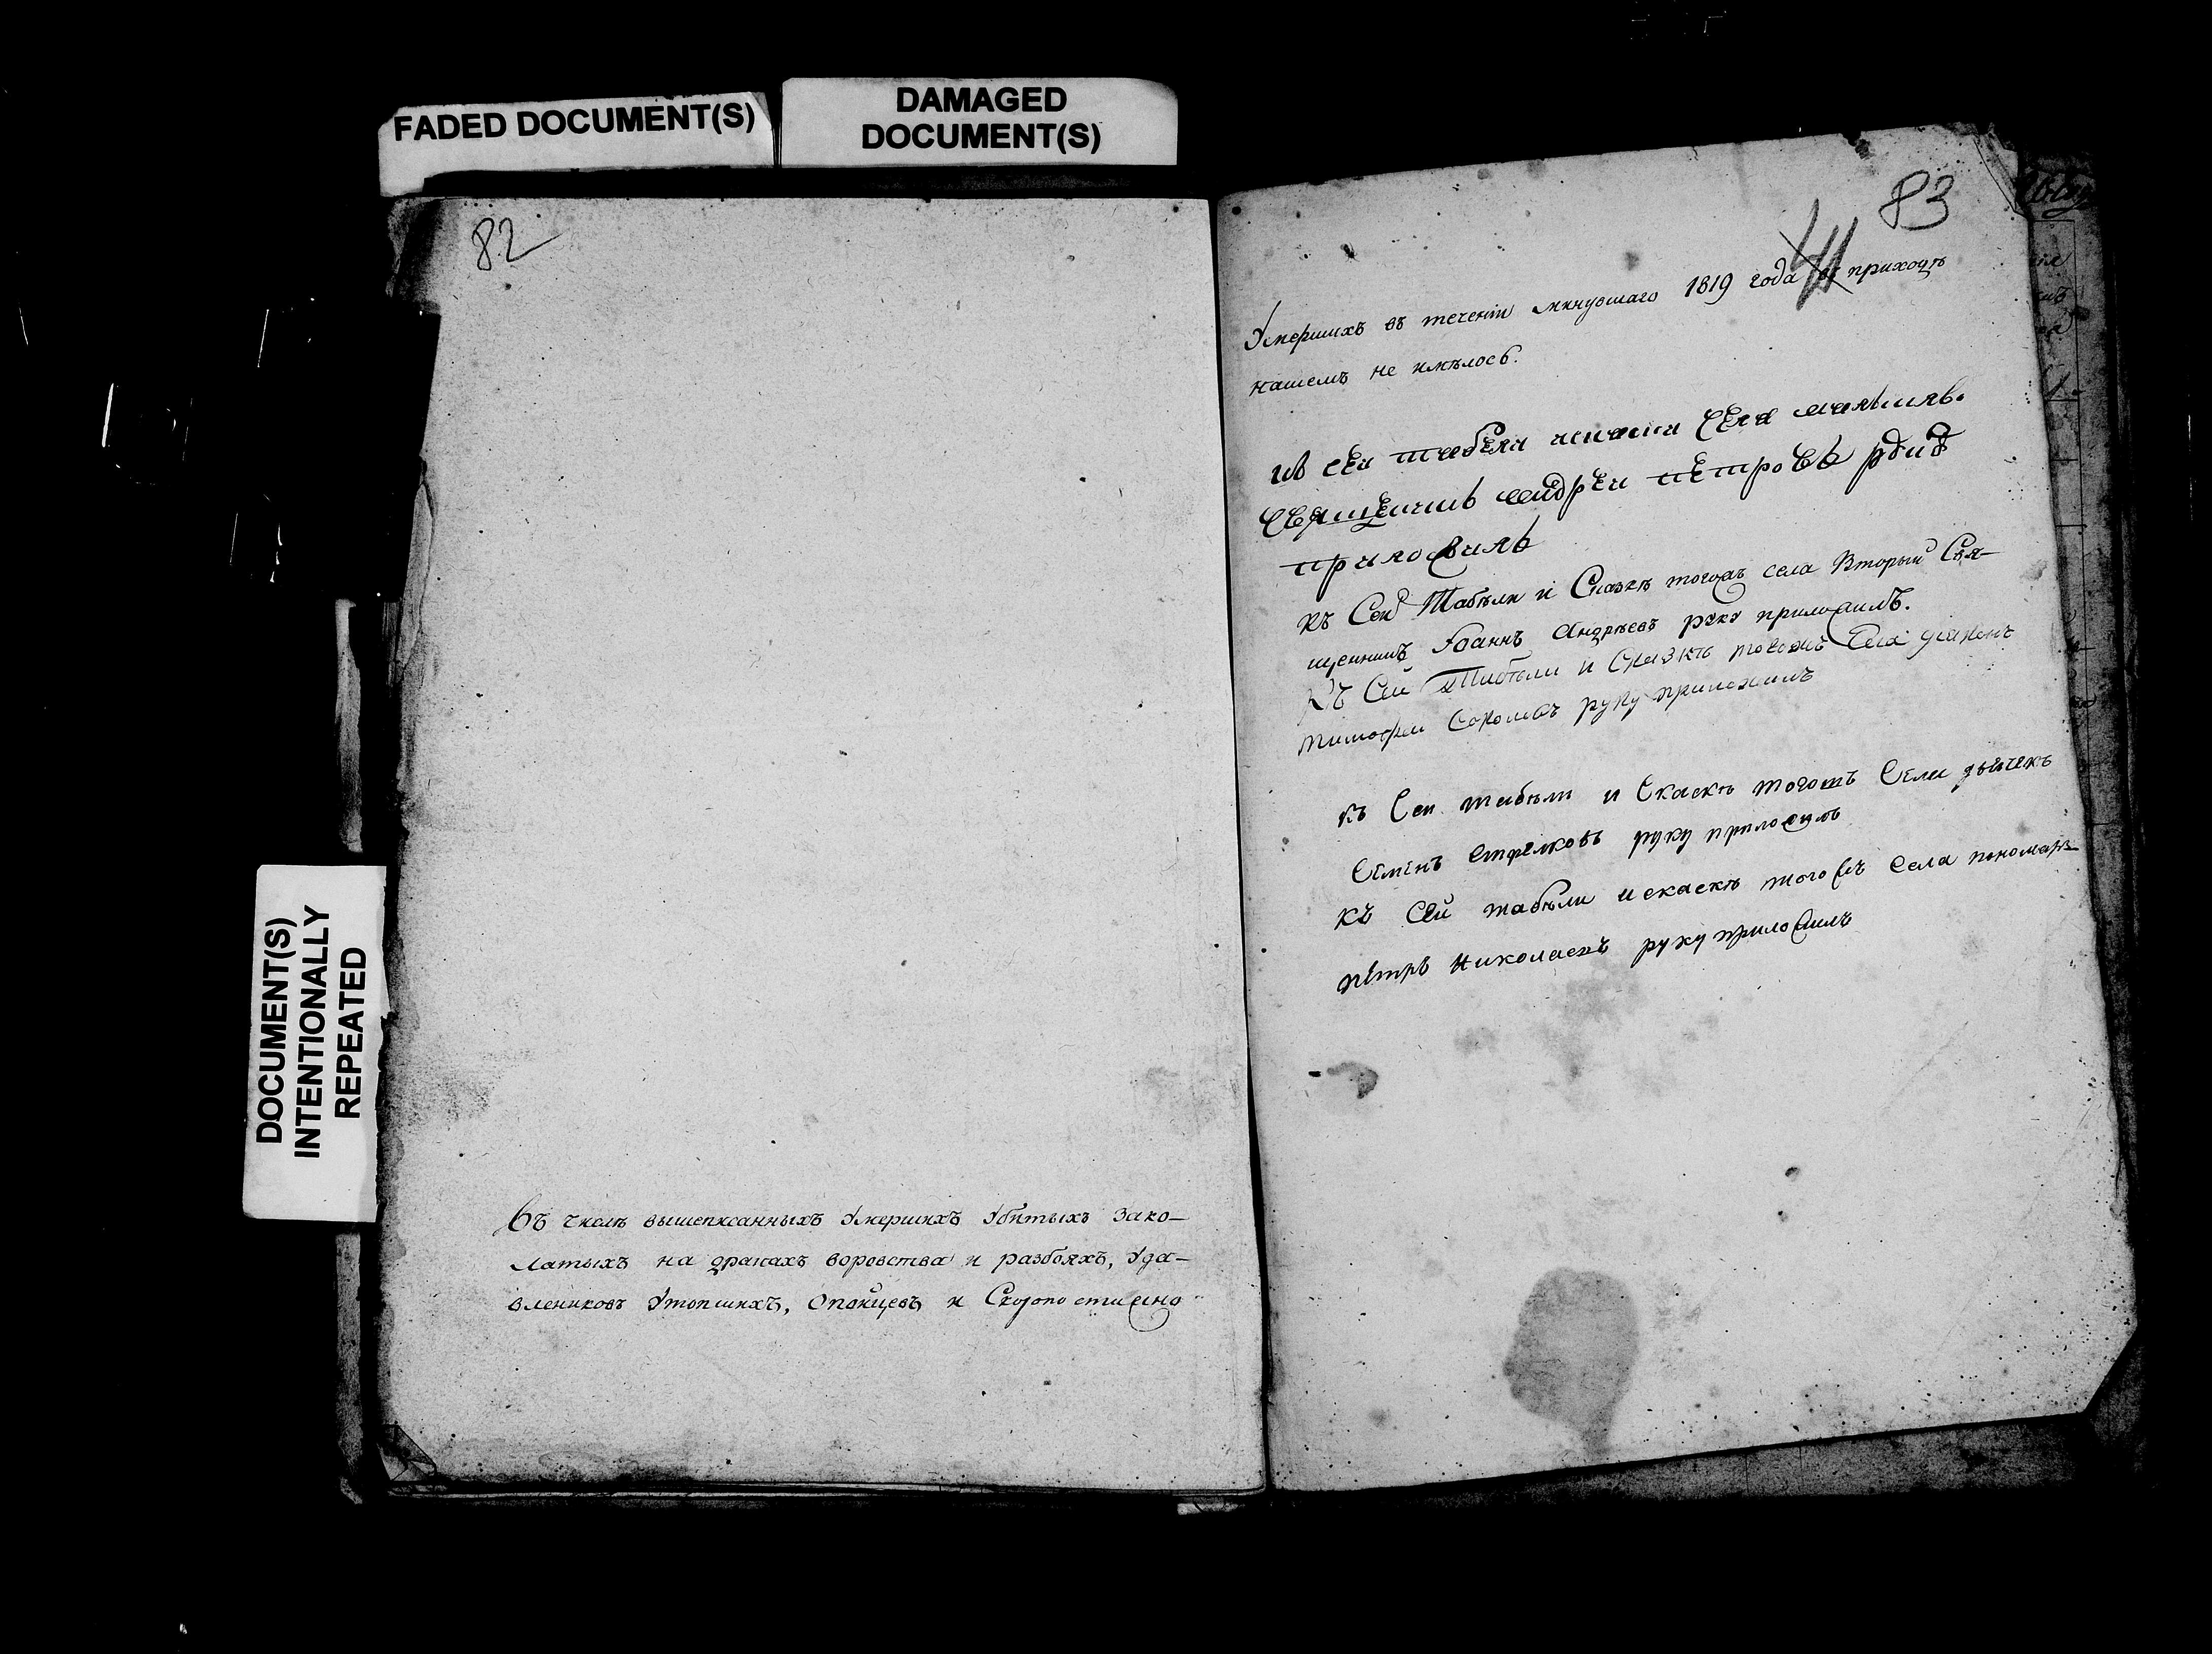 FADED DOCUMENT(S)
DAMAGED
DOCUMENT(S)
DOCUMENT(S)
INTENTIONALLY
REPEATED
82
Въ числѣ вышеписанныхъ Умершихъ Убитыхъ Зако-
латыхъ на дракахъ воровства и разбояхъ, Уда-
влениковъ Утопшихъ, Опойцевъ и Скоропостижно
83
41
Умершихъ въ теченіи минувшаго 1819 года въ приходѣ
нашемъ не имѣлось.
къ сеи табели села
священникъ андреи петровъ
приложилъ
Къ Сей Табѣли и Сказкѣ тогожъ села Вторый Свя-
щенникъ Іоаннъ Андрѣевъ руку приложилъ.
Къ Сей Табѣли и Сказкѣ тогожъ Села диаконъ
Тимофеи руку приложилъ
къ Сеи табѣли и Скаскѣ тогожъ Села дьячекъ
Семенъ Стрелковъ руку приложилъ
къ Сей табѣли и скаскѣ тогожъ Села пономарь
петръ Николаевъ руку приложилъ